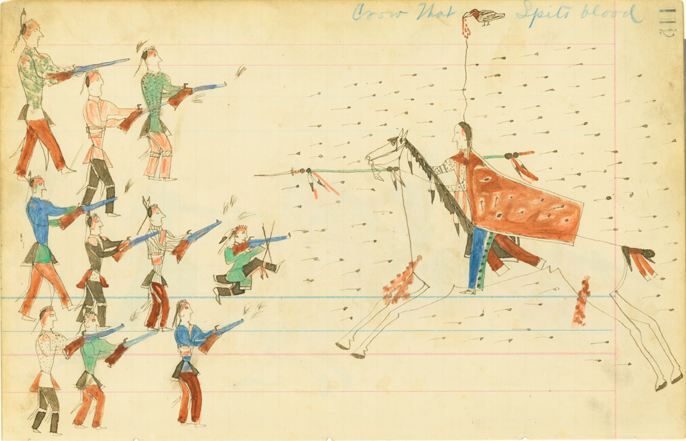 Crow That Spits blood
112